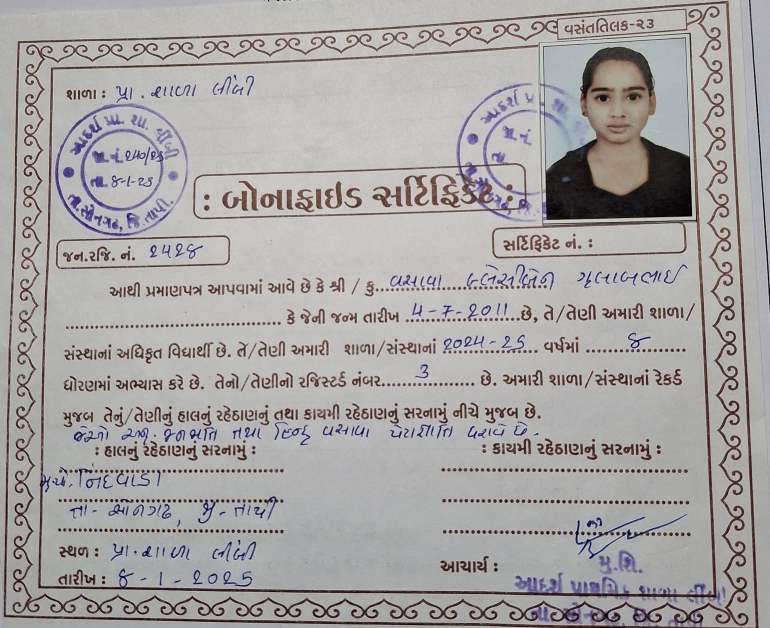 વસંતતિલક-૨૩
શાળા : પ્રા. શાળા લીંબી
આદર્શ પ્રા. શા. લીંબી
જા.નં. 240/25
તા. 8-1-25
તા.સોનગઢ, જિ.તાપી.
: બોનાફાઇડ સર્ટિફિકેટ :
જન.રજિ. નં. ૨૫૨૪
સર્ટિફિકેટ નં. :
આથી પ્રમાણપત્ર આપવામાં આવે છે કે શ્રી / કુ. વસાવા બ્લેસીબેન ગુલાબભાઈ
કે જેની જન્મ તારીખ 4-7-2011 છે, તે/તેણી અમારી શાળા/
સંસ્થાનાં અધિકૃત વિદ્યાર્થી છે. તે/તેણી અમારી શાળા/સંસ્થાનાં 2024-25 વર્ષમાં 8
ધોરણમાં અભ્યાસ કરે છે. તેનો/તેણીનો રજિસ્ટર્ડ નંબર 3 છે. અમારી શાળા/સંસ્થાનાં રેકર્ડ
મુજબ તેનું/તેણીનું હાલનું રહેઠાણનું તથા કાયમી રહેઠાણનું સરનામું નીચે મુજબ છે.
જેઓ અનુ. જનજાતિ તથા હિન્દુ વસાવા પેટાજ્ઞાતિ ધરાવે છે.
: હાલનું રહેઠાણનું સરનામું :
: કાયમી રહેઠાણનું સરનામું :
મુ.પો. નિંદવાડા
તા- સોનગઢ, જી- તાપી
સ્થળ : પ્રા. શાળા લીંબી
તારીખ : 8-1-2025
આચાર્ય :
મુ.શિ.
આદર્શ પ્રાથમિક શાળા લીંબી